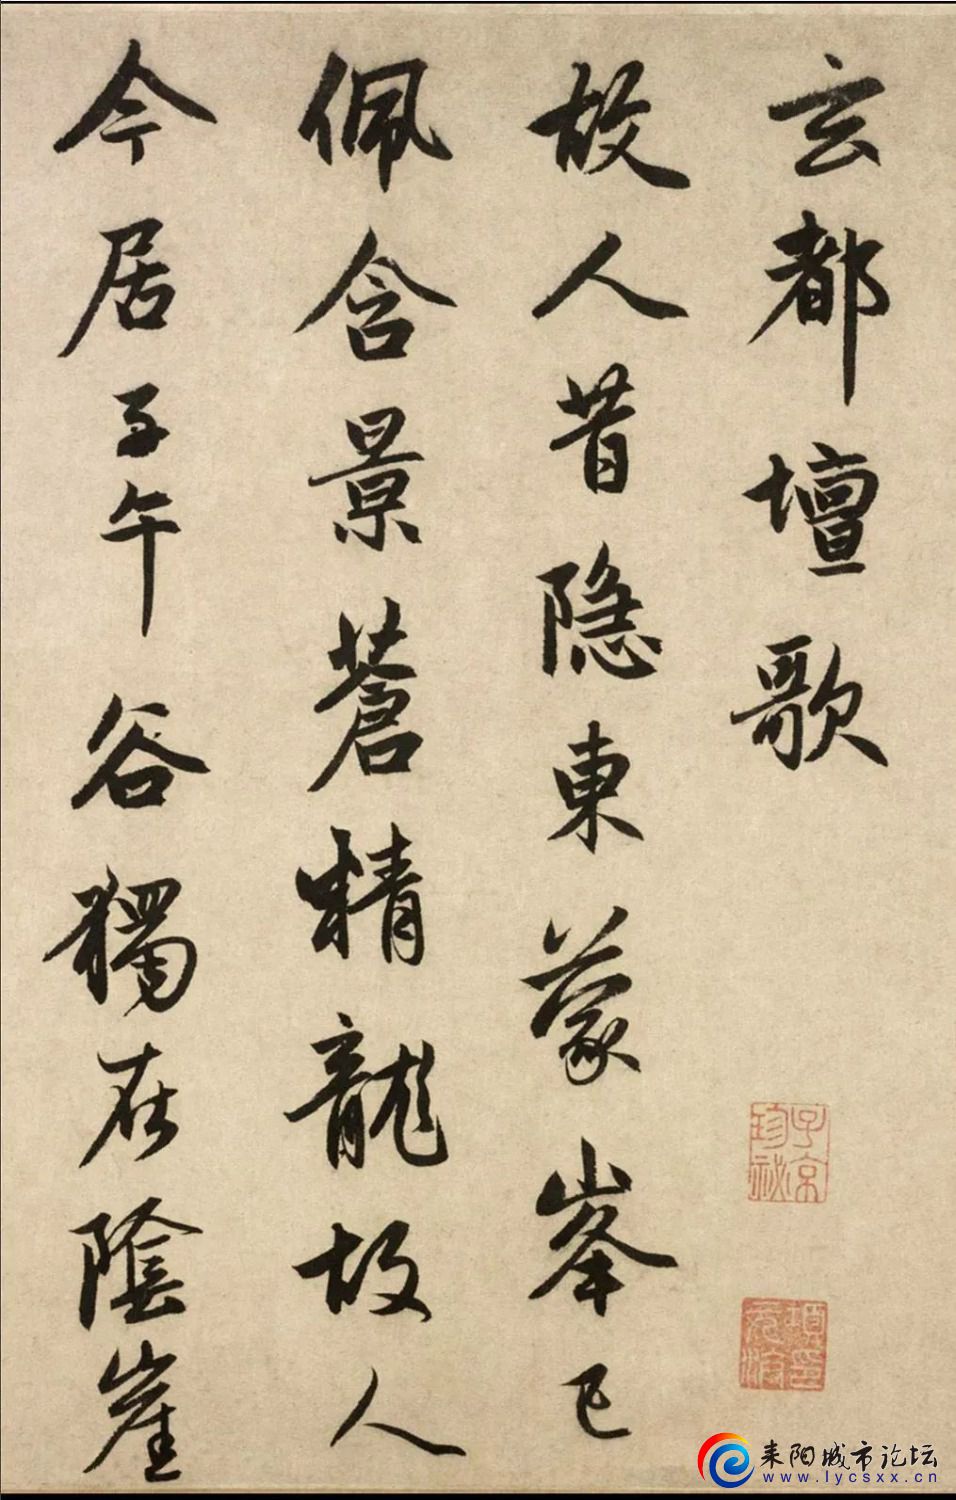 玄都壇歌
故人昔隐東蒙峯已
佩含景蒼精龍故人
今居子午谷獨在陰崖
子京
珍祕
項元汴印
耒阳城市论坛
www.lycsxx.cn